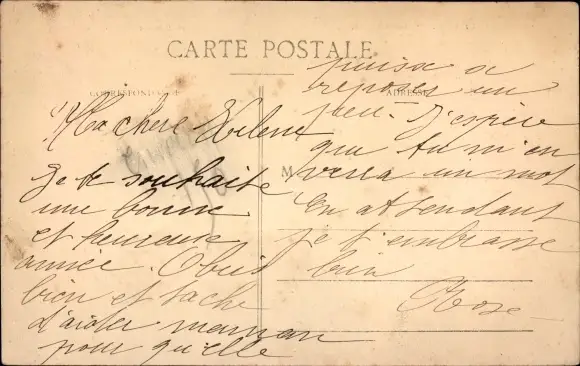 CARTE POSTALE
CORRESPONDANCE
ADRESSE
M
Ma chère Hélène
Je te souhaite
une bonne
et heureuse
année. Obeis
bien et tache
d'aider maman
pour qu'elle
puisse se
reposer un
peu. J'espère
que tu m'en
verra un mot
En attendant
je t'embrasse
bien
Rose